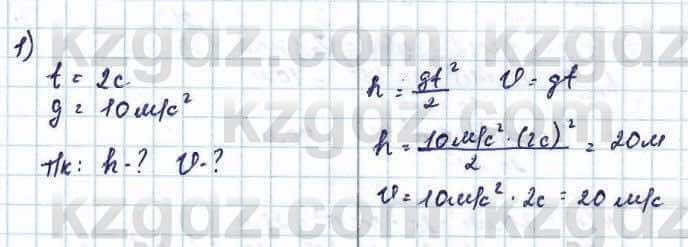 1)
t = 2c
g = 10 м/c²
Т/к: h-? υ-?
h = gt²/2 υ = gt
h = 10 м/c² · (2c)²/2 = 20м
υ = 10 м/c² · 2c = 20 м/c
kzgdz.com
kzgdz.com
kzgdz.com
kzgdz.com